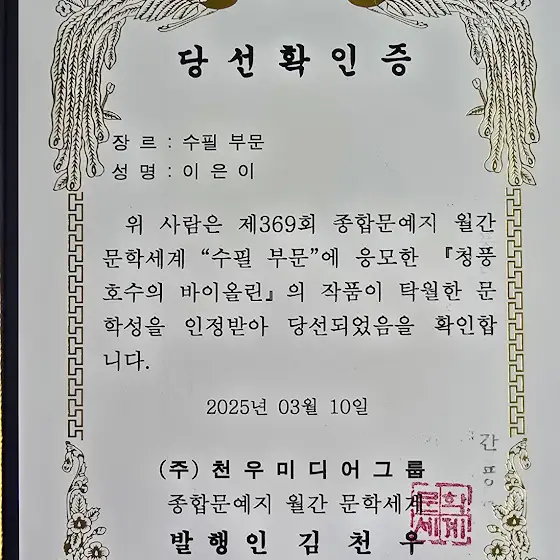 당선확인증
장 르 : 수필 부문
성 명 : 이 은 이
위 사람은 제369회 종합문예지 월간
문학세계 “수필 부문”에 응모한 『청풍
호수의 바이올린』의 작품이 탁월한 문
학성을 인정받아 당선되었음을 확인합
니다.
2025년 03월 10일
(주) 천우미디어그룹
종합문예지 월간 문학세계
발행인 김천우
문학
세계